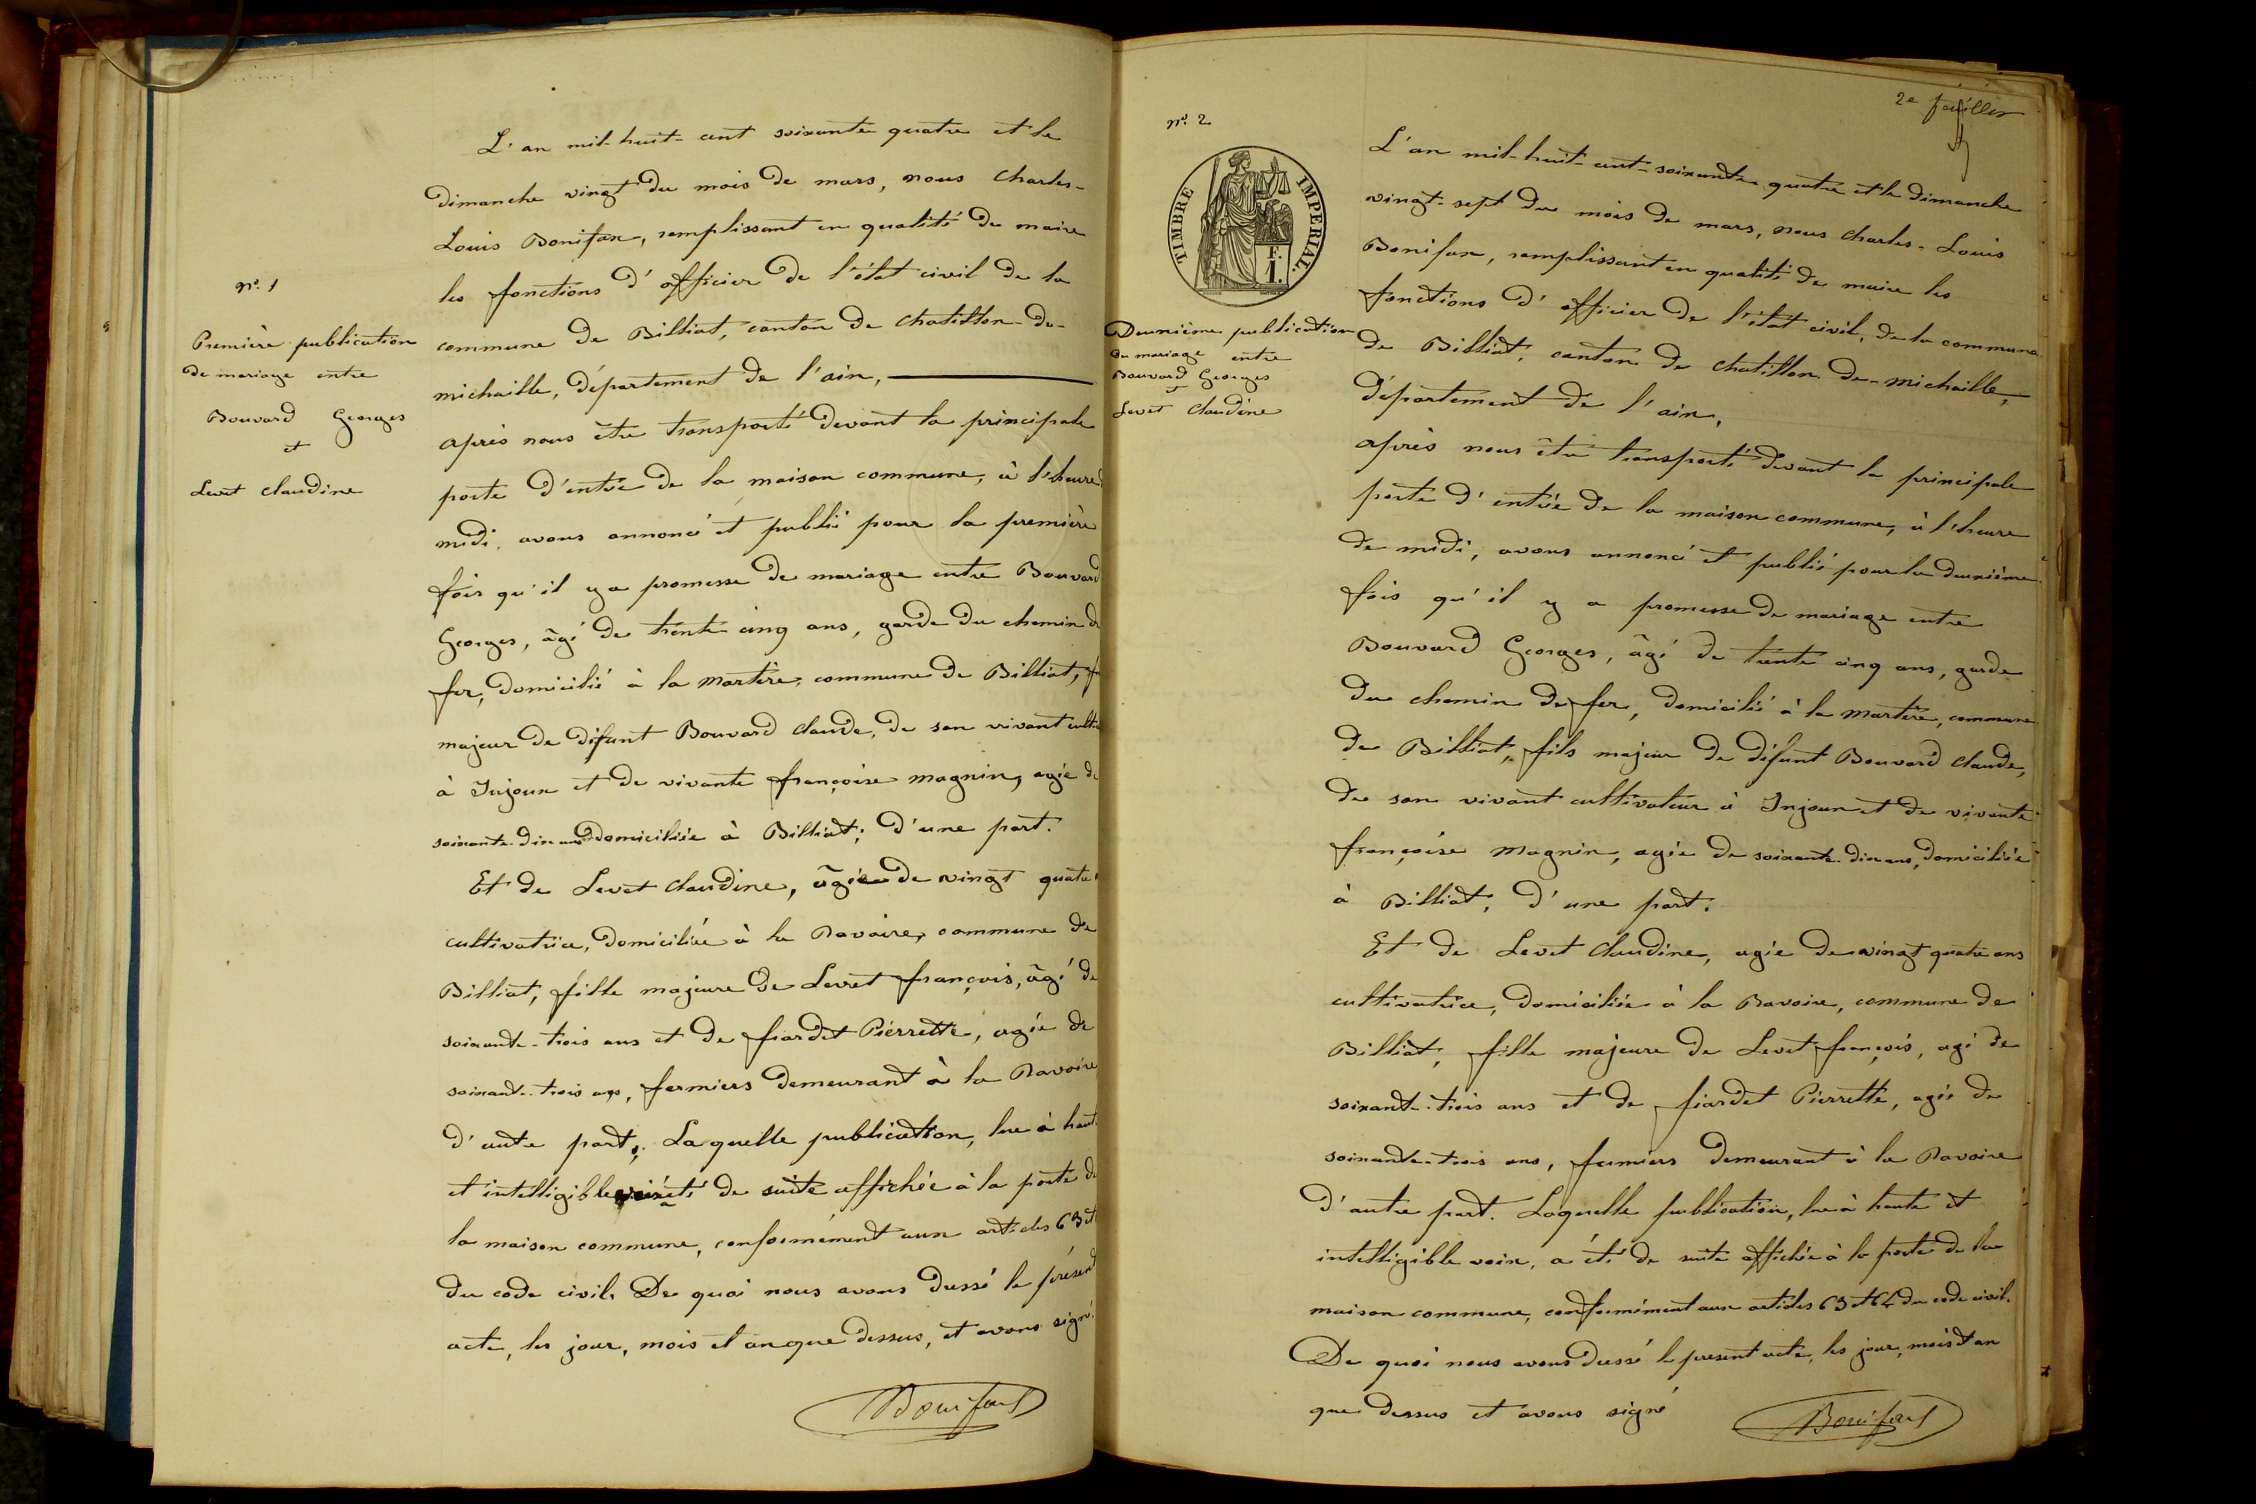 n°. 1
Première publication
de mariage entre
Bouvard Georges
et
Levet claudine
L'an mil-huit-cent soixante quatre et le
dimanche vingt du mois de mars, nous Charles-
Louis Bonifax, remplissant en qualité de maire
les fonctions d'officier de l'état civil de la
commune de Billiat, canton de Chatillon-de-
michaille, département de l'ain,
après nous être transporté devant la principale
porte d'entrée de la maison commune, à l'heure
midi, avons annoncé et publié pour la première
fois qu'il y a promesse de mariage entre Bouvard
Georges, âgé de trente cinq ans, garde du chemin de
fer, domicilié à la martère, commune de Billiat,
majeur de défunt Bouvard claude, de son vivant
à Injoux et de vivante françoise magnin, agée de
soixante-dix ans domiciliée à Billiat; d'une part.
Et de Levet claudine, âgée de vingt quatre
cultivatrice, domiciliée à la Pavoire, commune de
Billiat, fille majeure de Levet françois, âgé de
soixante-trois ans et de fiardet Pierrette, agée de
soixante-trois ans, fermiers demeurant à la Pavoire
d'autre part; Laquelle publication, lue à haute
et intelligible de suite affichée à la porte de
la maison commune, conformément aux articles 63 et
du code civil. De quoi nous avons dressé le présent
acte, les jour, mois et an que dessus, et avons signé.
Bonifax
2e feuillet
n°. 2
TIMBRE IMPERIAL.
F.
1.
Deuxième publication
de mariage entre
Bouvard Georges
et
Levet claudine
L'an mil-huit-cent-soixante quatre et le dimanche
vingt-sept du mois de mars, nous Charles-Louis
Bonifax, remplissant en qualité de maire les
fonctions d'officier de l'état civil, de la commune
de Billiat, canton de Chatillon-de-michaille,
département de l'ain,
après nous être transporté devant la principale
porte d'entrée de la maison commune, à l'heure
de midi, avons annoncé et publié pour la deuxième
fois qu'il y a promesse de mariage entre
Bouvard Georges, âgé de trente cinq ans, garde
du chemin de fer, domicilié à la martère, commune
de Billiat, fils majeur de défunt Bouvard claude,
de son vivant cultivateur à Injoux et de vivante
françoise magnin, agée de soixante-dix ans, domiciliée
à Billiat; d'une part.
Et de Levet Claudine, agée de vingt quatre ans
cultivatrice, domiciliée à la Pavoire, commune de
Billiat; fille majeure de Levet françois, agé de
soixante-trois ans et de fiardet Pierrette, agée de
soixante-trois ans, fermiers demeurant à la Pavoire
d'autre part. Laquelle publication, lue à haute et
intelligible voix, a été de suite affichée à la porte de la
maison commune, conformément aux articles 63 et 64 du code civil.
De quoi nous avons dressé le present acte, les jour, mois et an
que dessus et avons signé
Bonifax